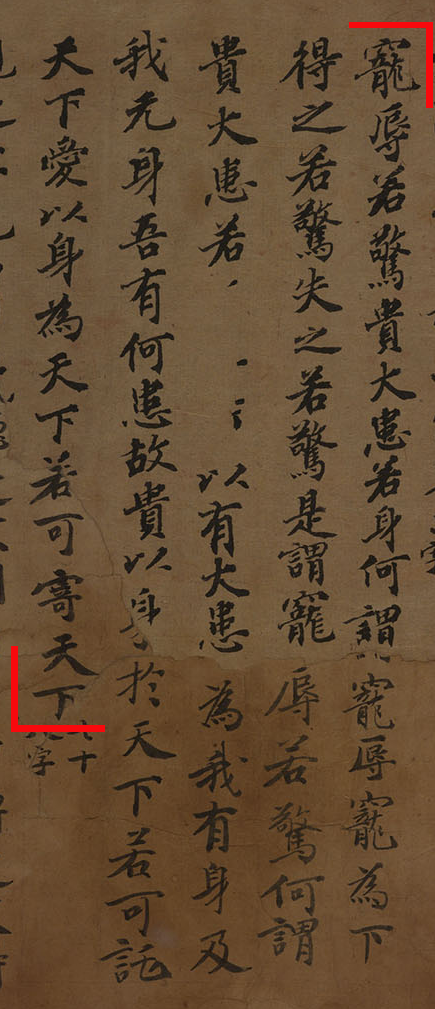 寵辱若驚貴大患若身何謂寵辱寵為下
得之若驚失之若驚是謂寵辱若驚何謂
貴大患若以有大患為我有身及
我无身吾有何患故貴以身於天下若可託
天下愛以身為天下若可寄天下十字